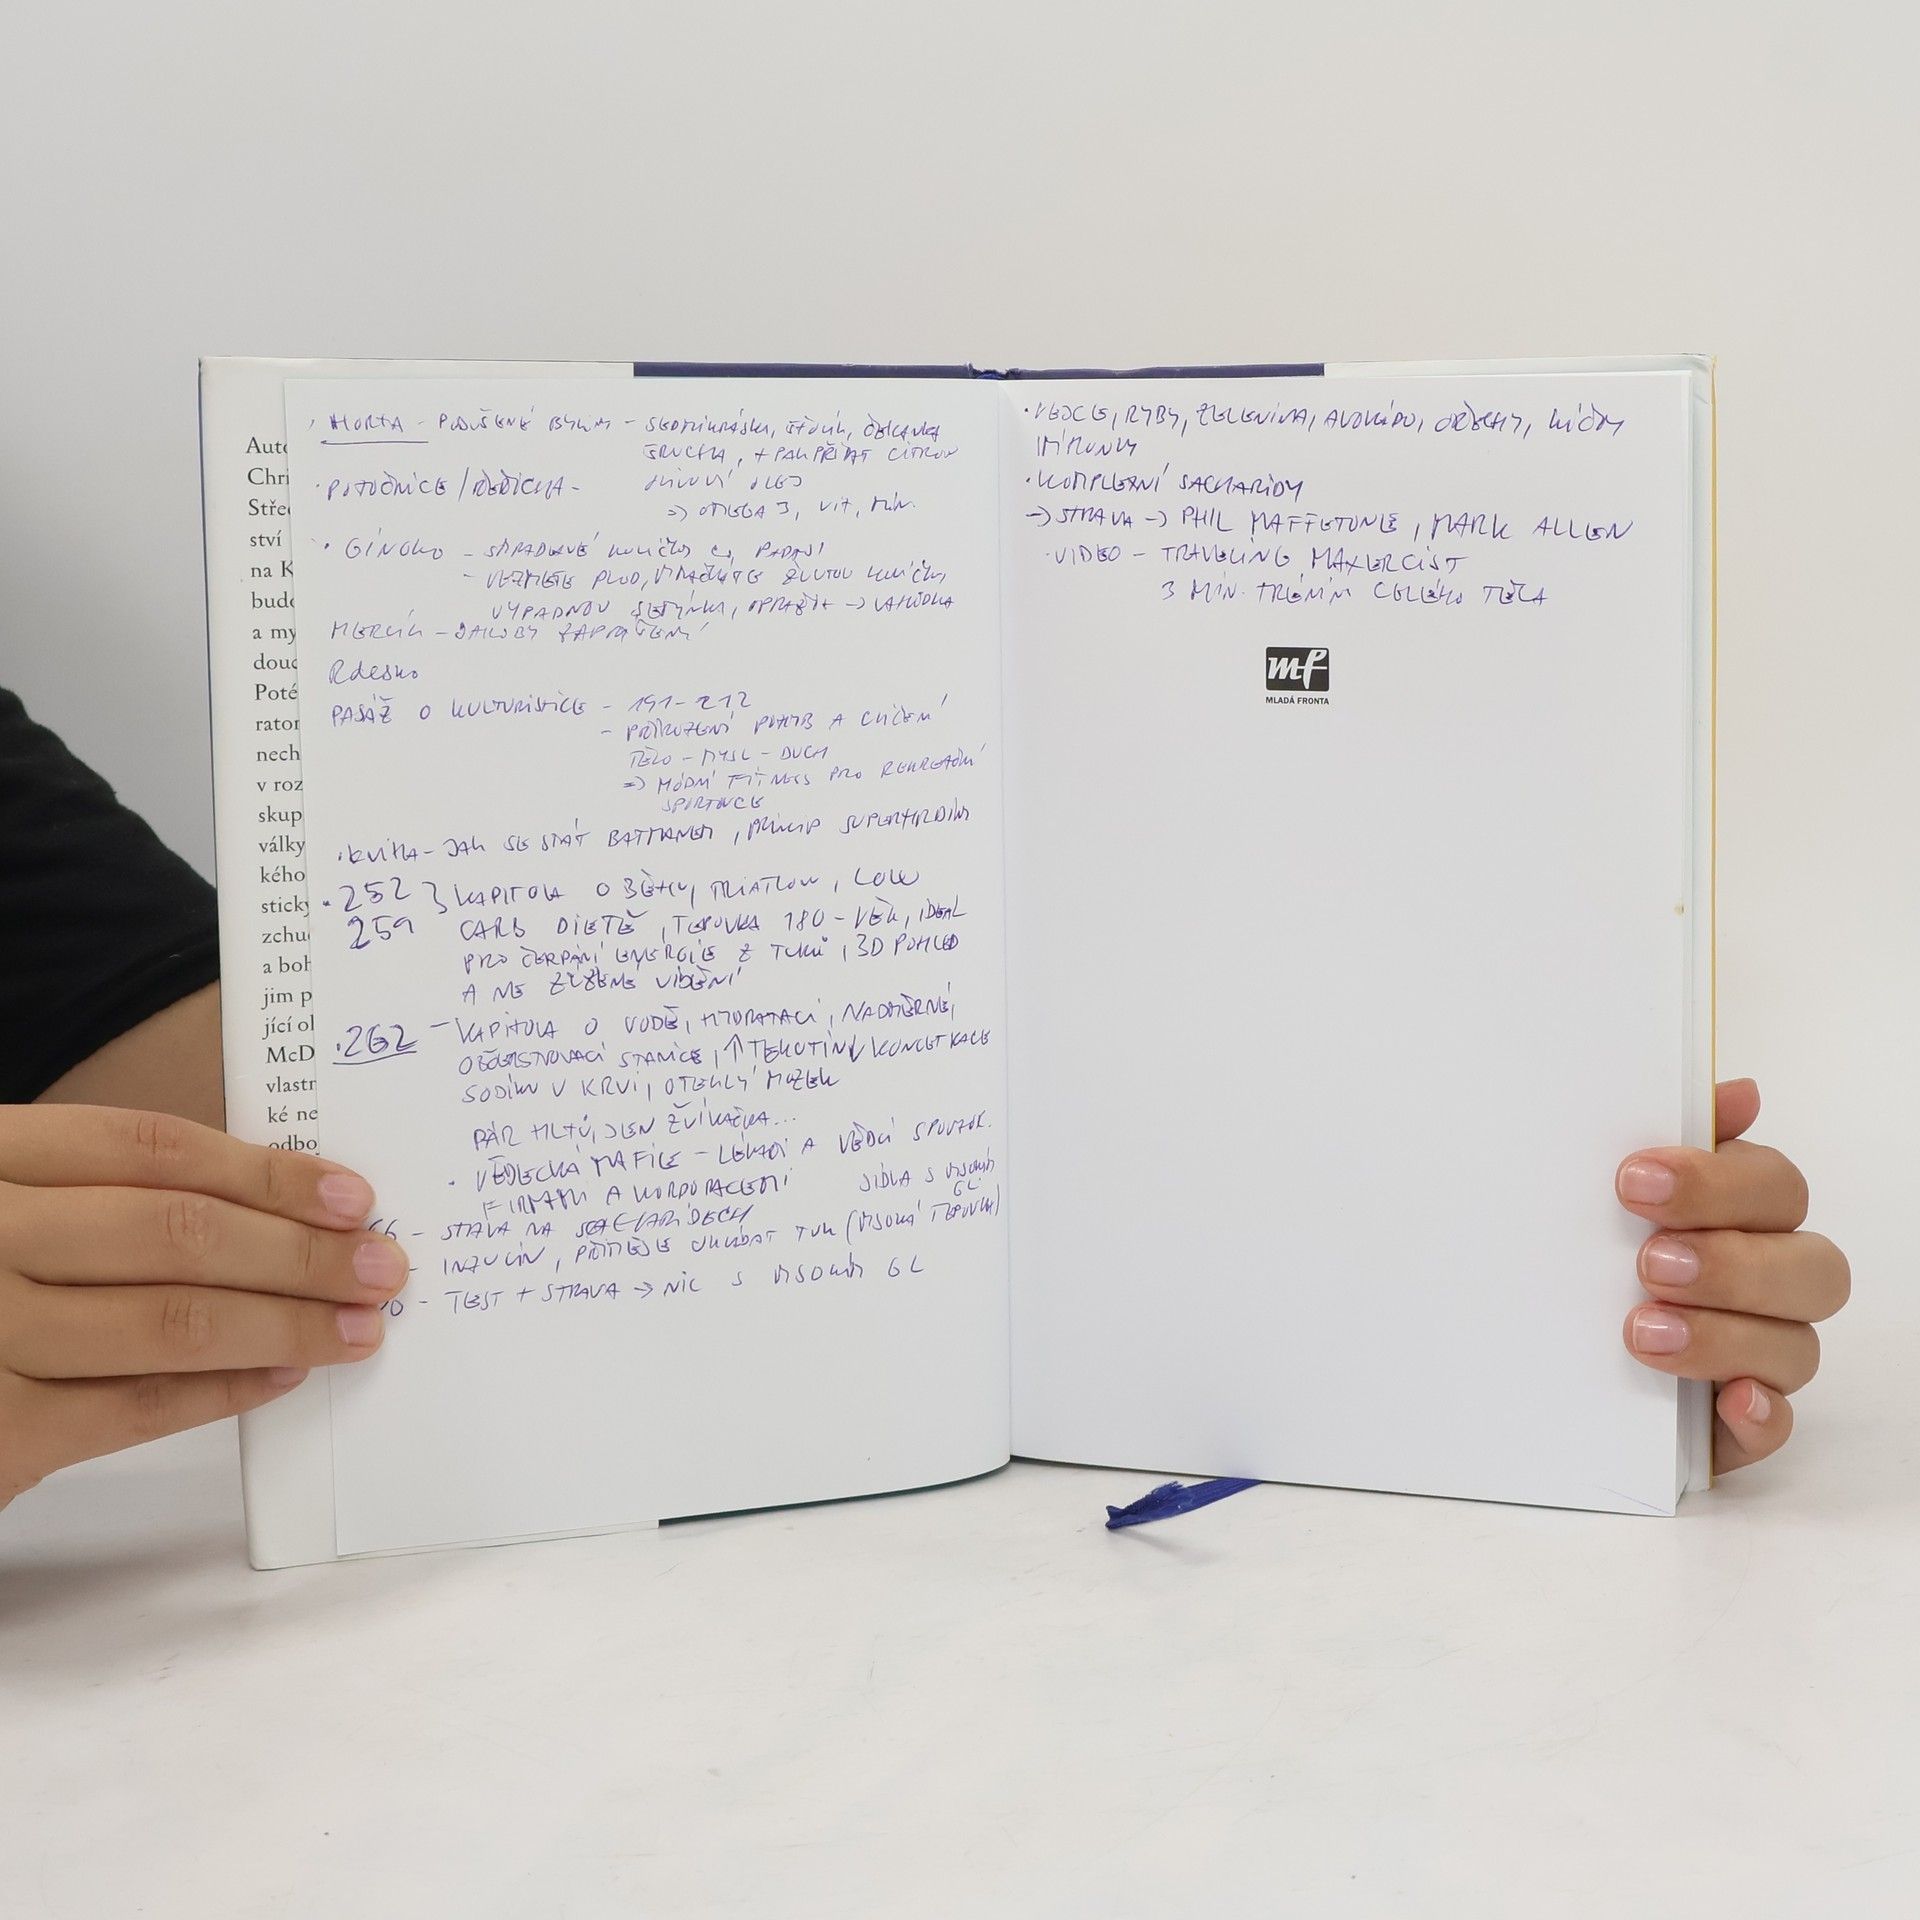 Auto
Chri
Střed
ství
na K
budo
a my
douc
Poté
rator
nech
v roz
skup
války
kého
sticky
zchu
a boh
jim p
jící ol
McD
vlastn
ké ne
odbo
HORTA - PODUŠENÉ BYLIN - SEDMIKRÁSKA, ŠŤOVÍK, ČEKANKA
+ PAK PŘIDAT CITRON
POTOČNICE / ŘEŘICHA - OLIVOVÝ OLEJ
=> OMEGA 3, VIT, MIN.
· GINGKO - KULIČKY CO PADAJÍ
- VEZMETE PLOD, VYMAČKÁTE ŽLUTOU KULIČKU,
VYPADNOU SEMÍNKA, OPRAŽIT -> LAHŮDKA
MERLÍK - JAKOBY ZAPRÁŠENÝ
Rdesno
PASÁŽ O KULTURISTICE - 191-212
- PŘIROZENÝ POHYB A CVIČENÍ
TĚLO - MYSL - DUCH
=> MÓDNÍ FITNESS PRO REKREAČNÍ
SPORTOVCE
· KNIHA - JAK SE STÁT BATMANEM, PRINCIP SUPERHRDINY
· 252 } KAPITOLA O BĚHU, TRIATLON, LOW
259 CARB DIETĚ, TEPOVKA 180 - VĚK, IDEAL
PRO ČERPÁNÍ ENERGIE Z TUKŮ, 3D POHLED
A NE ZÚŽENÉ VIDĚNÍ
· 262 - KAPITOLA O VODĚ, HYDRATACI, NADMĚRNÉ,
OBČERSTVOVACÍ STANICE, ↑ TEKUTIN ↓ KONCETKACE
SODÍKU V KRVI, OTEKLÝ MOZEK
PÁR HLTŮ, JEN ŽVÍKAČKA...
· VĚDECKÁ MAFIE - LÉKAŘI A VĚDCI SPONZOR.
FIRMAMI A KORPORACEMI JÍDLA S VYSOKÝM
GL
66 - STRAVA NA SACHARIDECH
- INZULÍN, PŘIMĚJE UKLÁDAT TUK (VYSOKÁ TEPOVKA)
70 - TEST + STRAVA -> NIC S VYSOKÝM GL
· VEJCE, RYBY, ZELENINA, AVOKÁDO, OŘECHY, KLÍČKY
· KOMPLEXNÍ SACHARIDY
-> STRAVA -> PHIL MAFFETONE, MARK ALLEN
· VIDEO - TRAVELING MAXERCIST
3 MIN. TRÉNIN CELÉHO TĚLA
mf
MLADÁ FRONTA